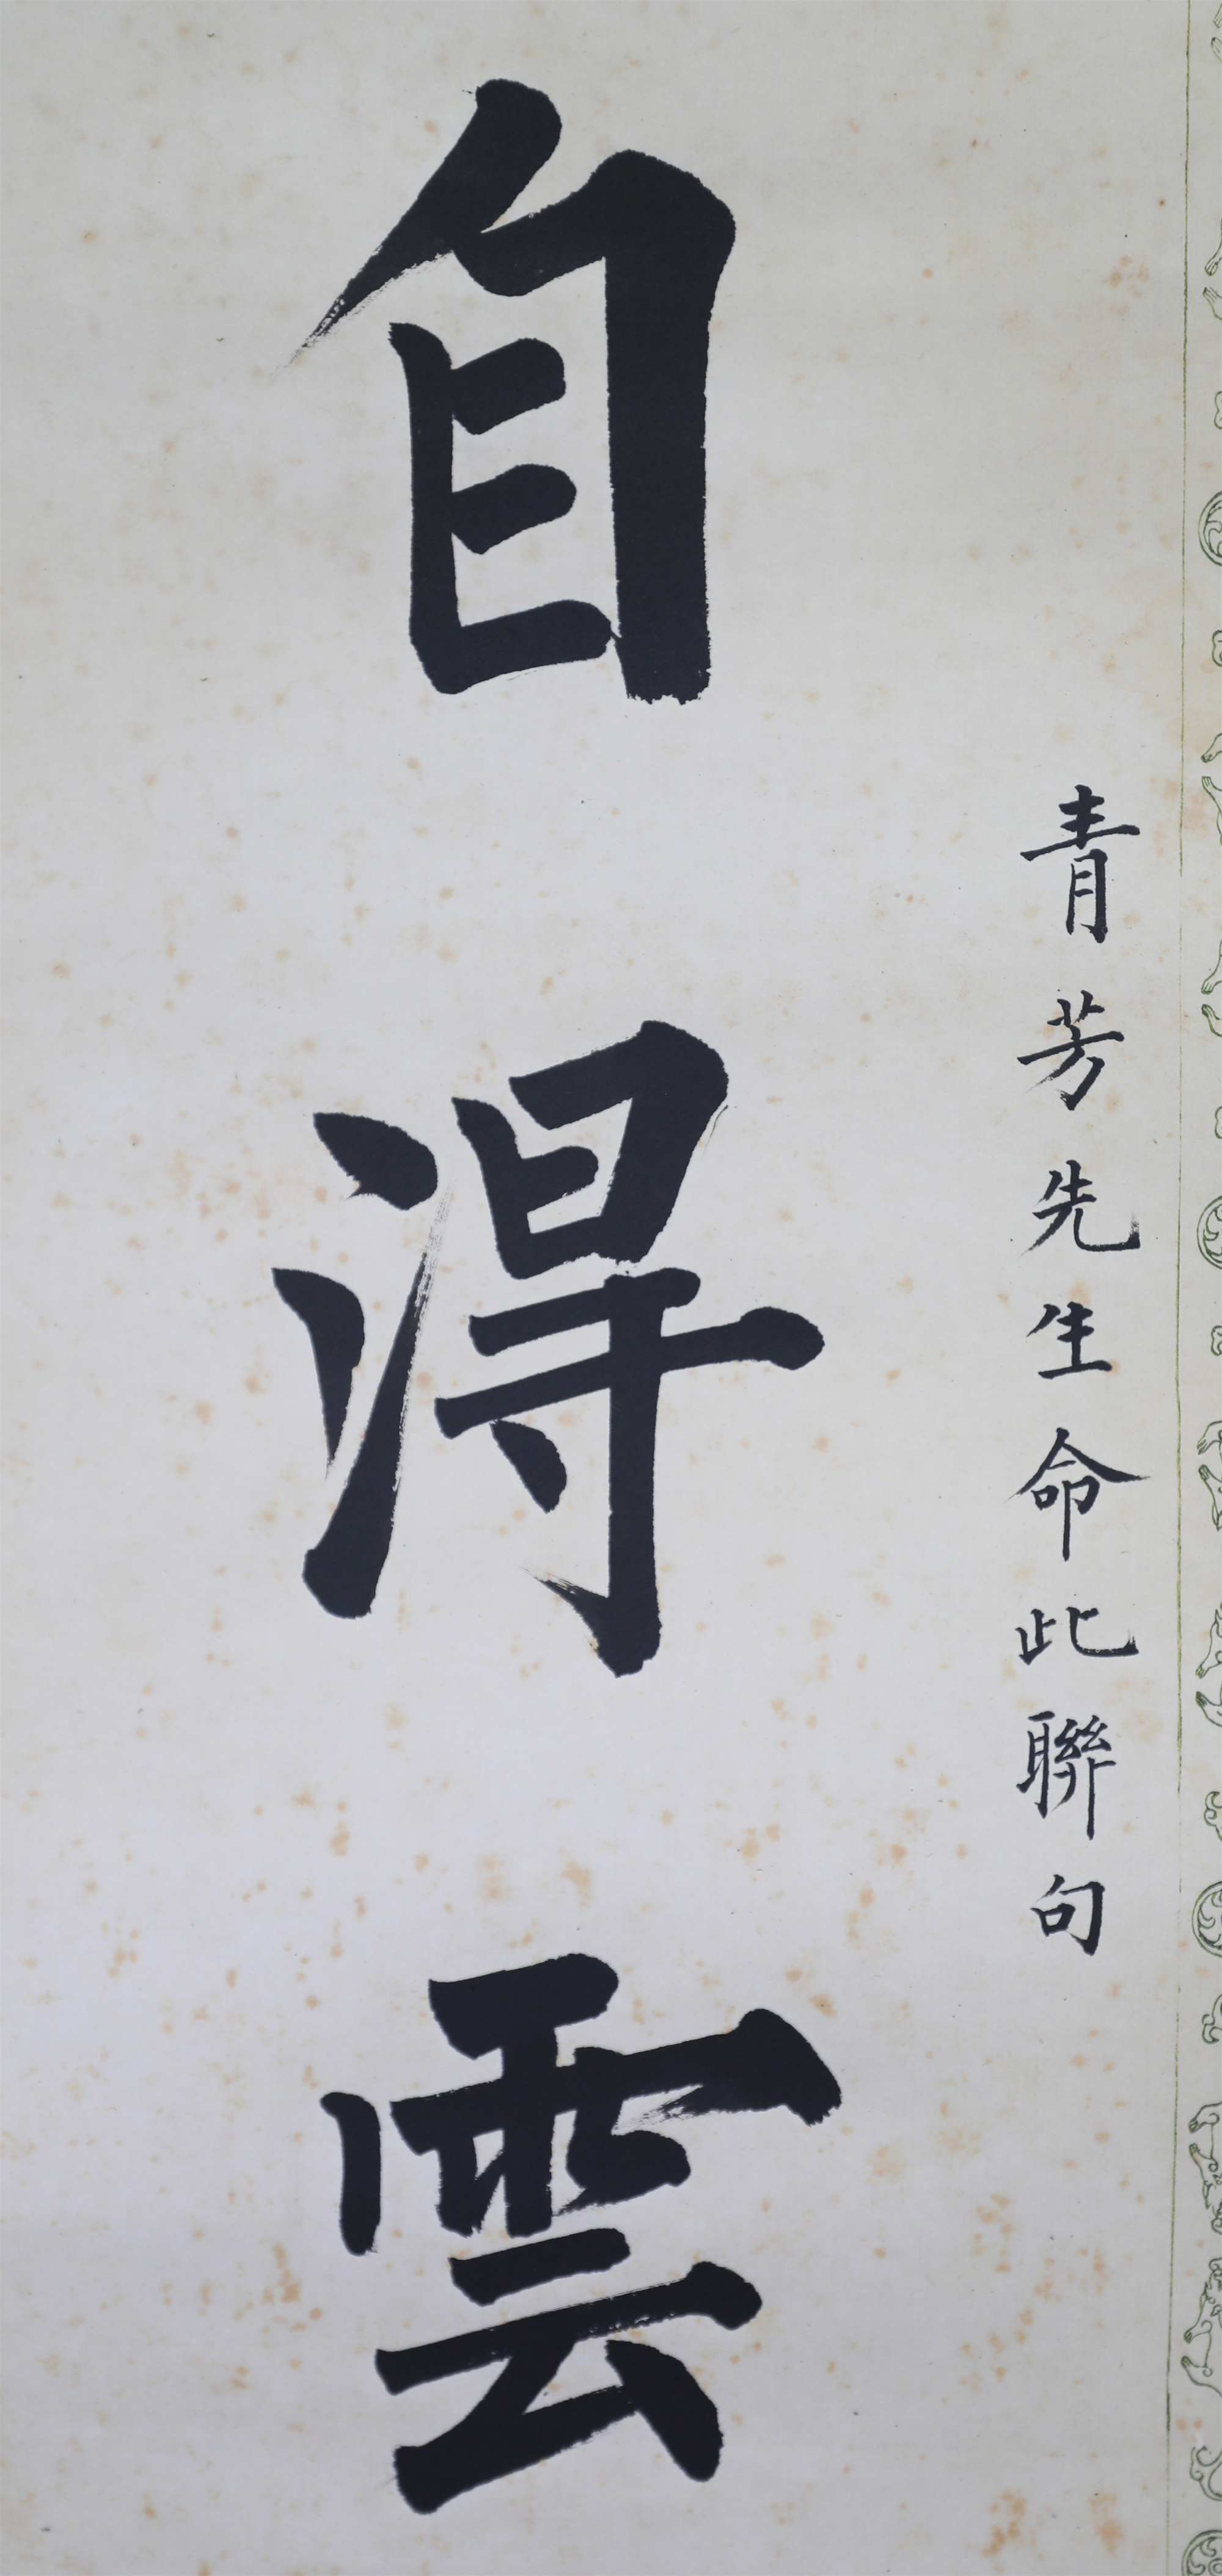 青芳先生命此聯句
自淂雲